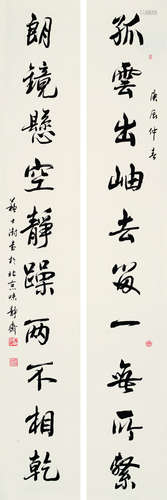 孤雲出岫去留一無所繫
庚辰仲春
朗鏡懸空靜躁兩不相乾
蘇士澍書於北京